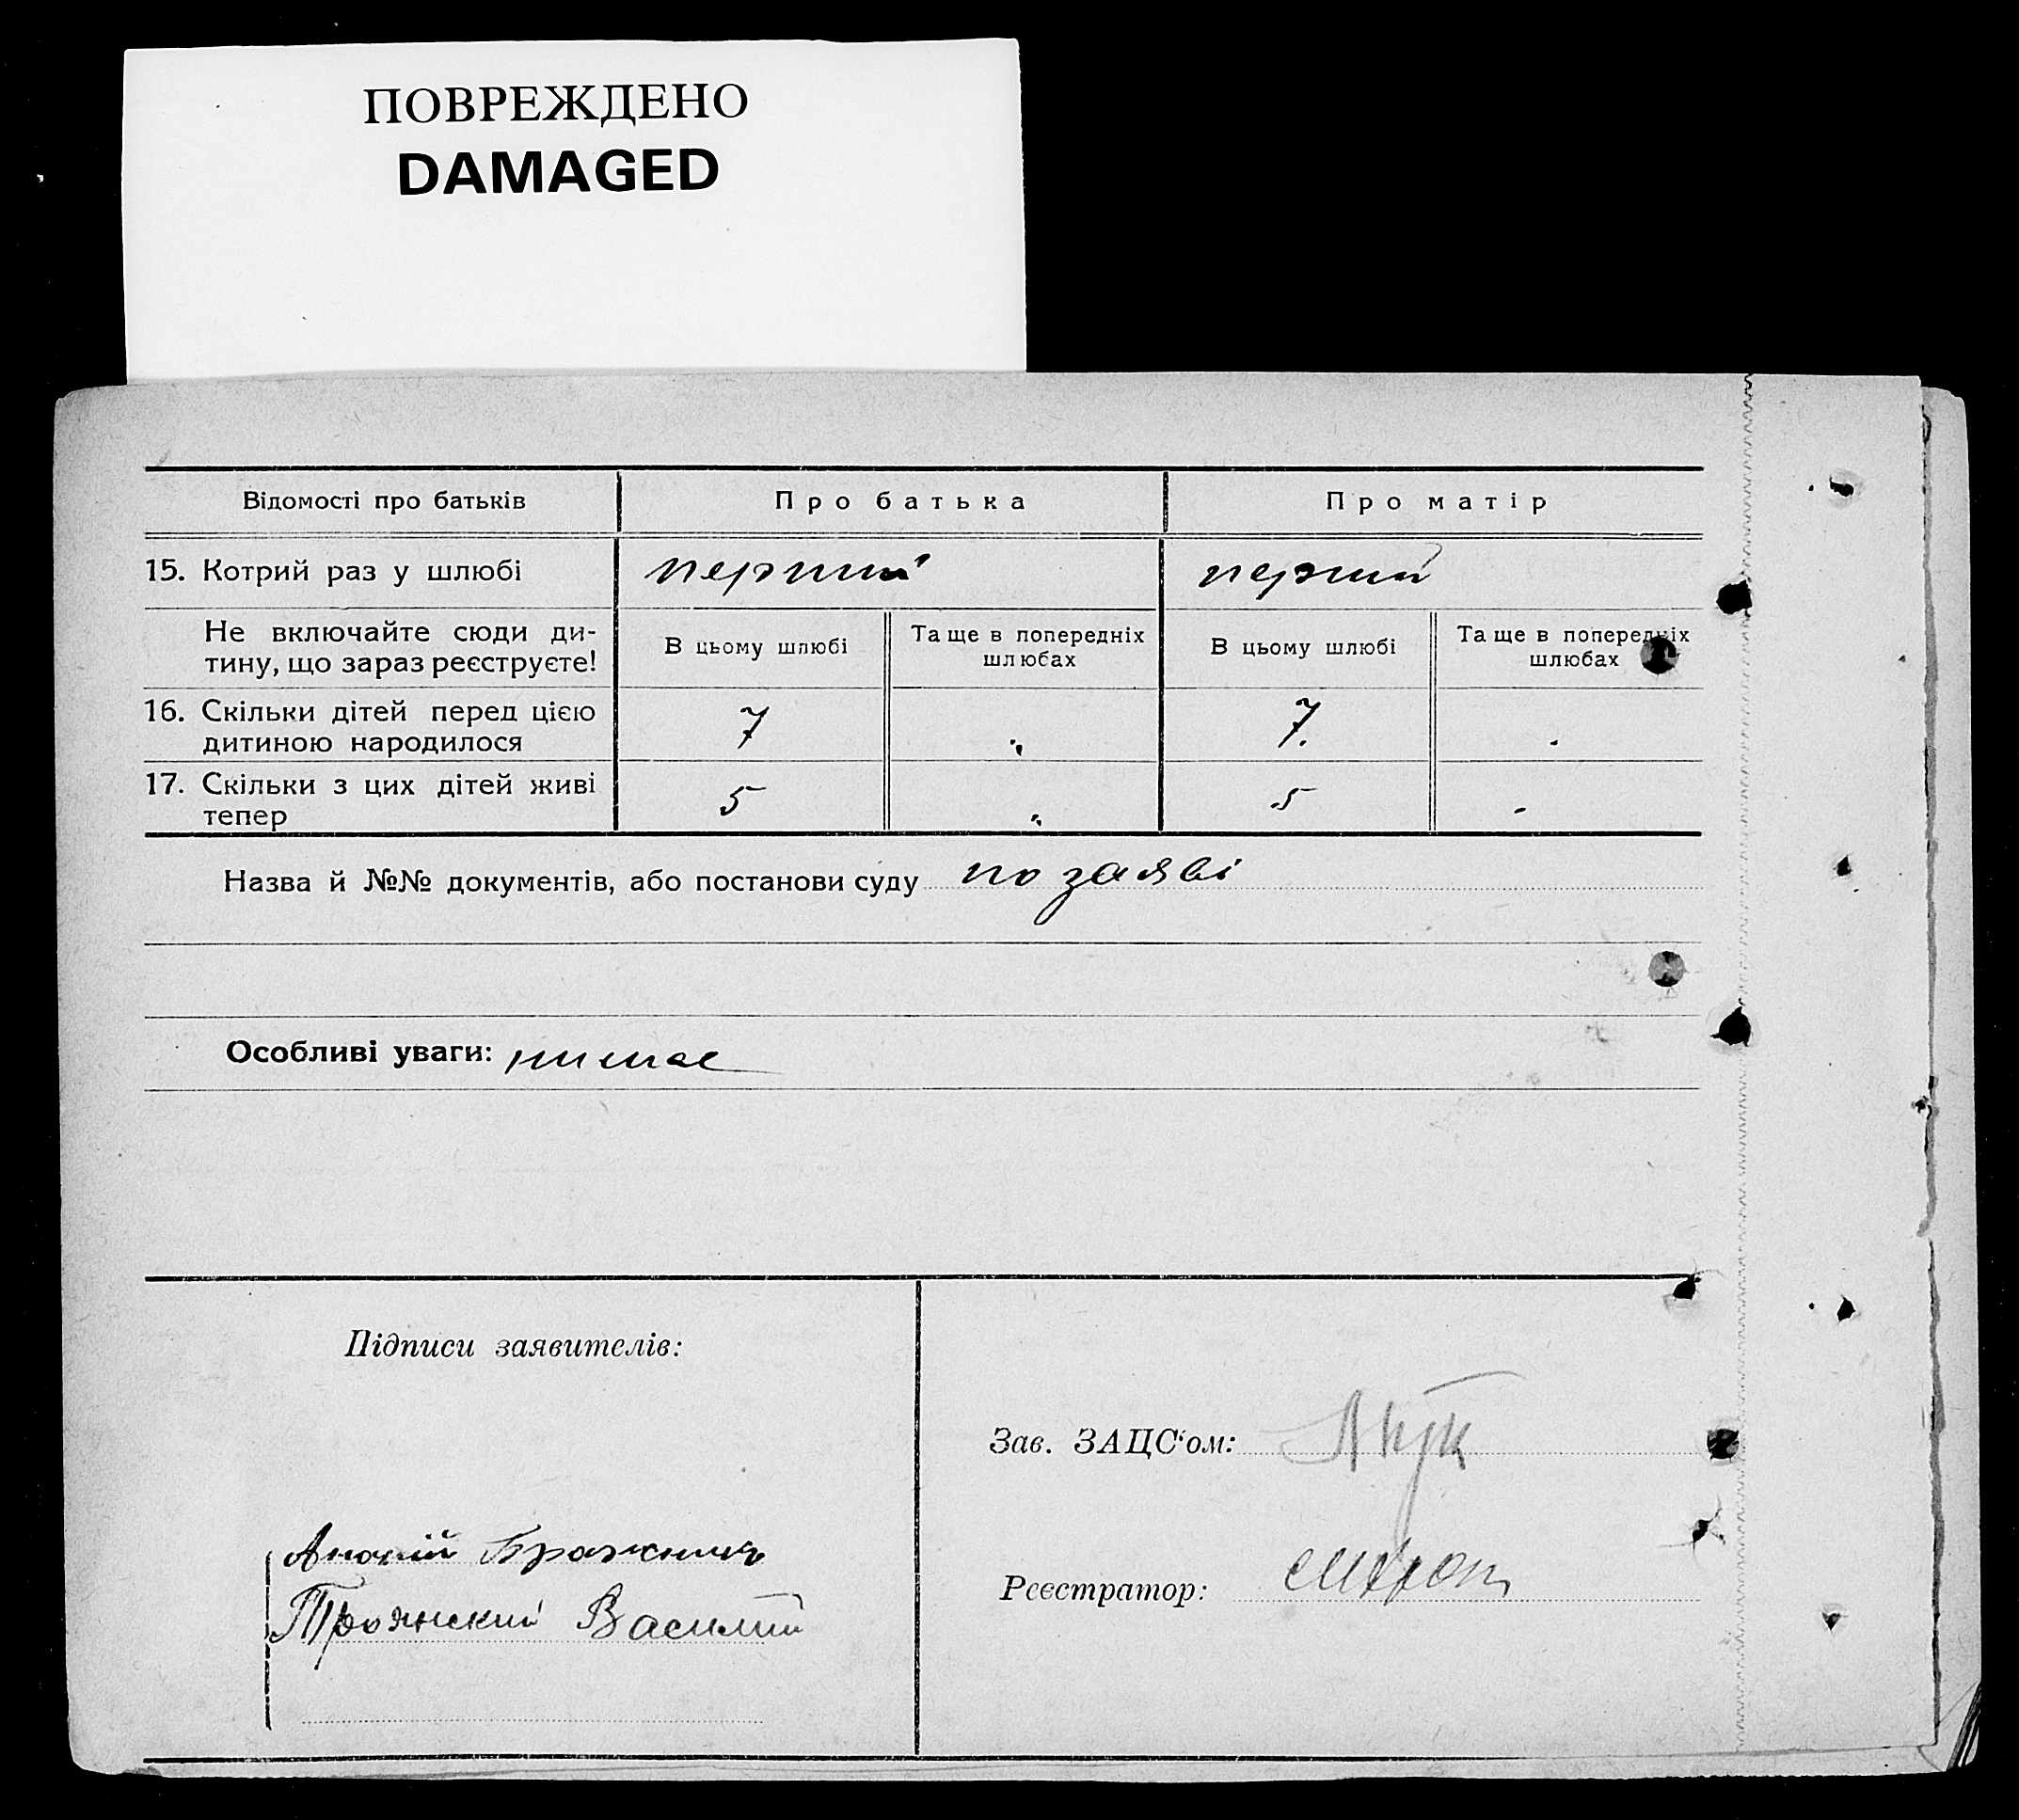 ПОВРЕЖДЕНО
DAMAGED
Відомості про батьків
Про батька
Про матір
15. Котрий раз у шлюбі
перший
перший
Не включайте сюди ди-
тину, що зараз реєструєте!
В цьому шлюбі
Та ще в попередніх
шлюбах
В цьому шлюбі
Та ще в попередніх
шлюбах
16. Скільки дітей перед цією
дитиною народилося
7
7.
17. Скільки з цих дітей живі
тепер
5
5
Назва й №№ документів, або постанови суду по заяві
Особливі уваги: немає
Підписи заявителів:
Зав. ЗАЦС‘ом:
Реєстратор:
Бражник
Троянский Василий